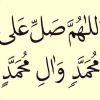 اَللّٰهُمَّ صَلِّ عَلٰى
مُحَمَّدٍ وَّاٰلِ مُحَمَّدٍ